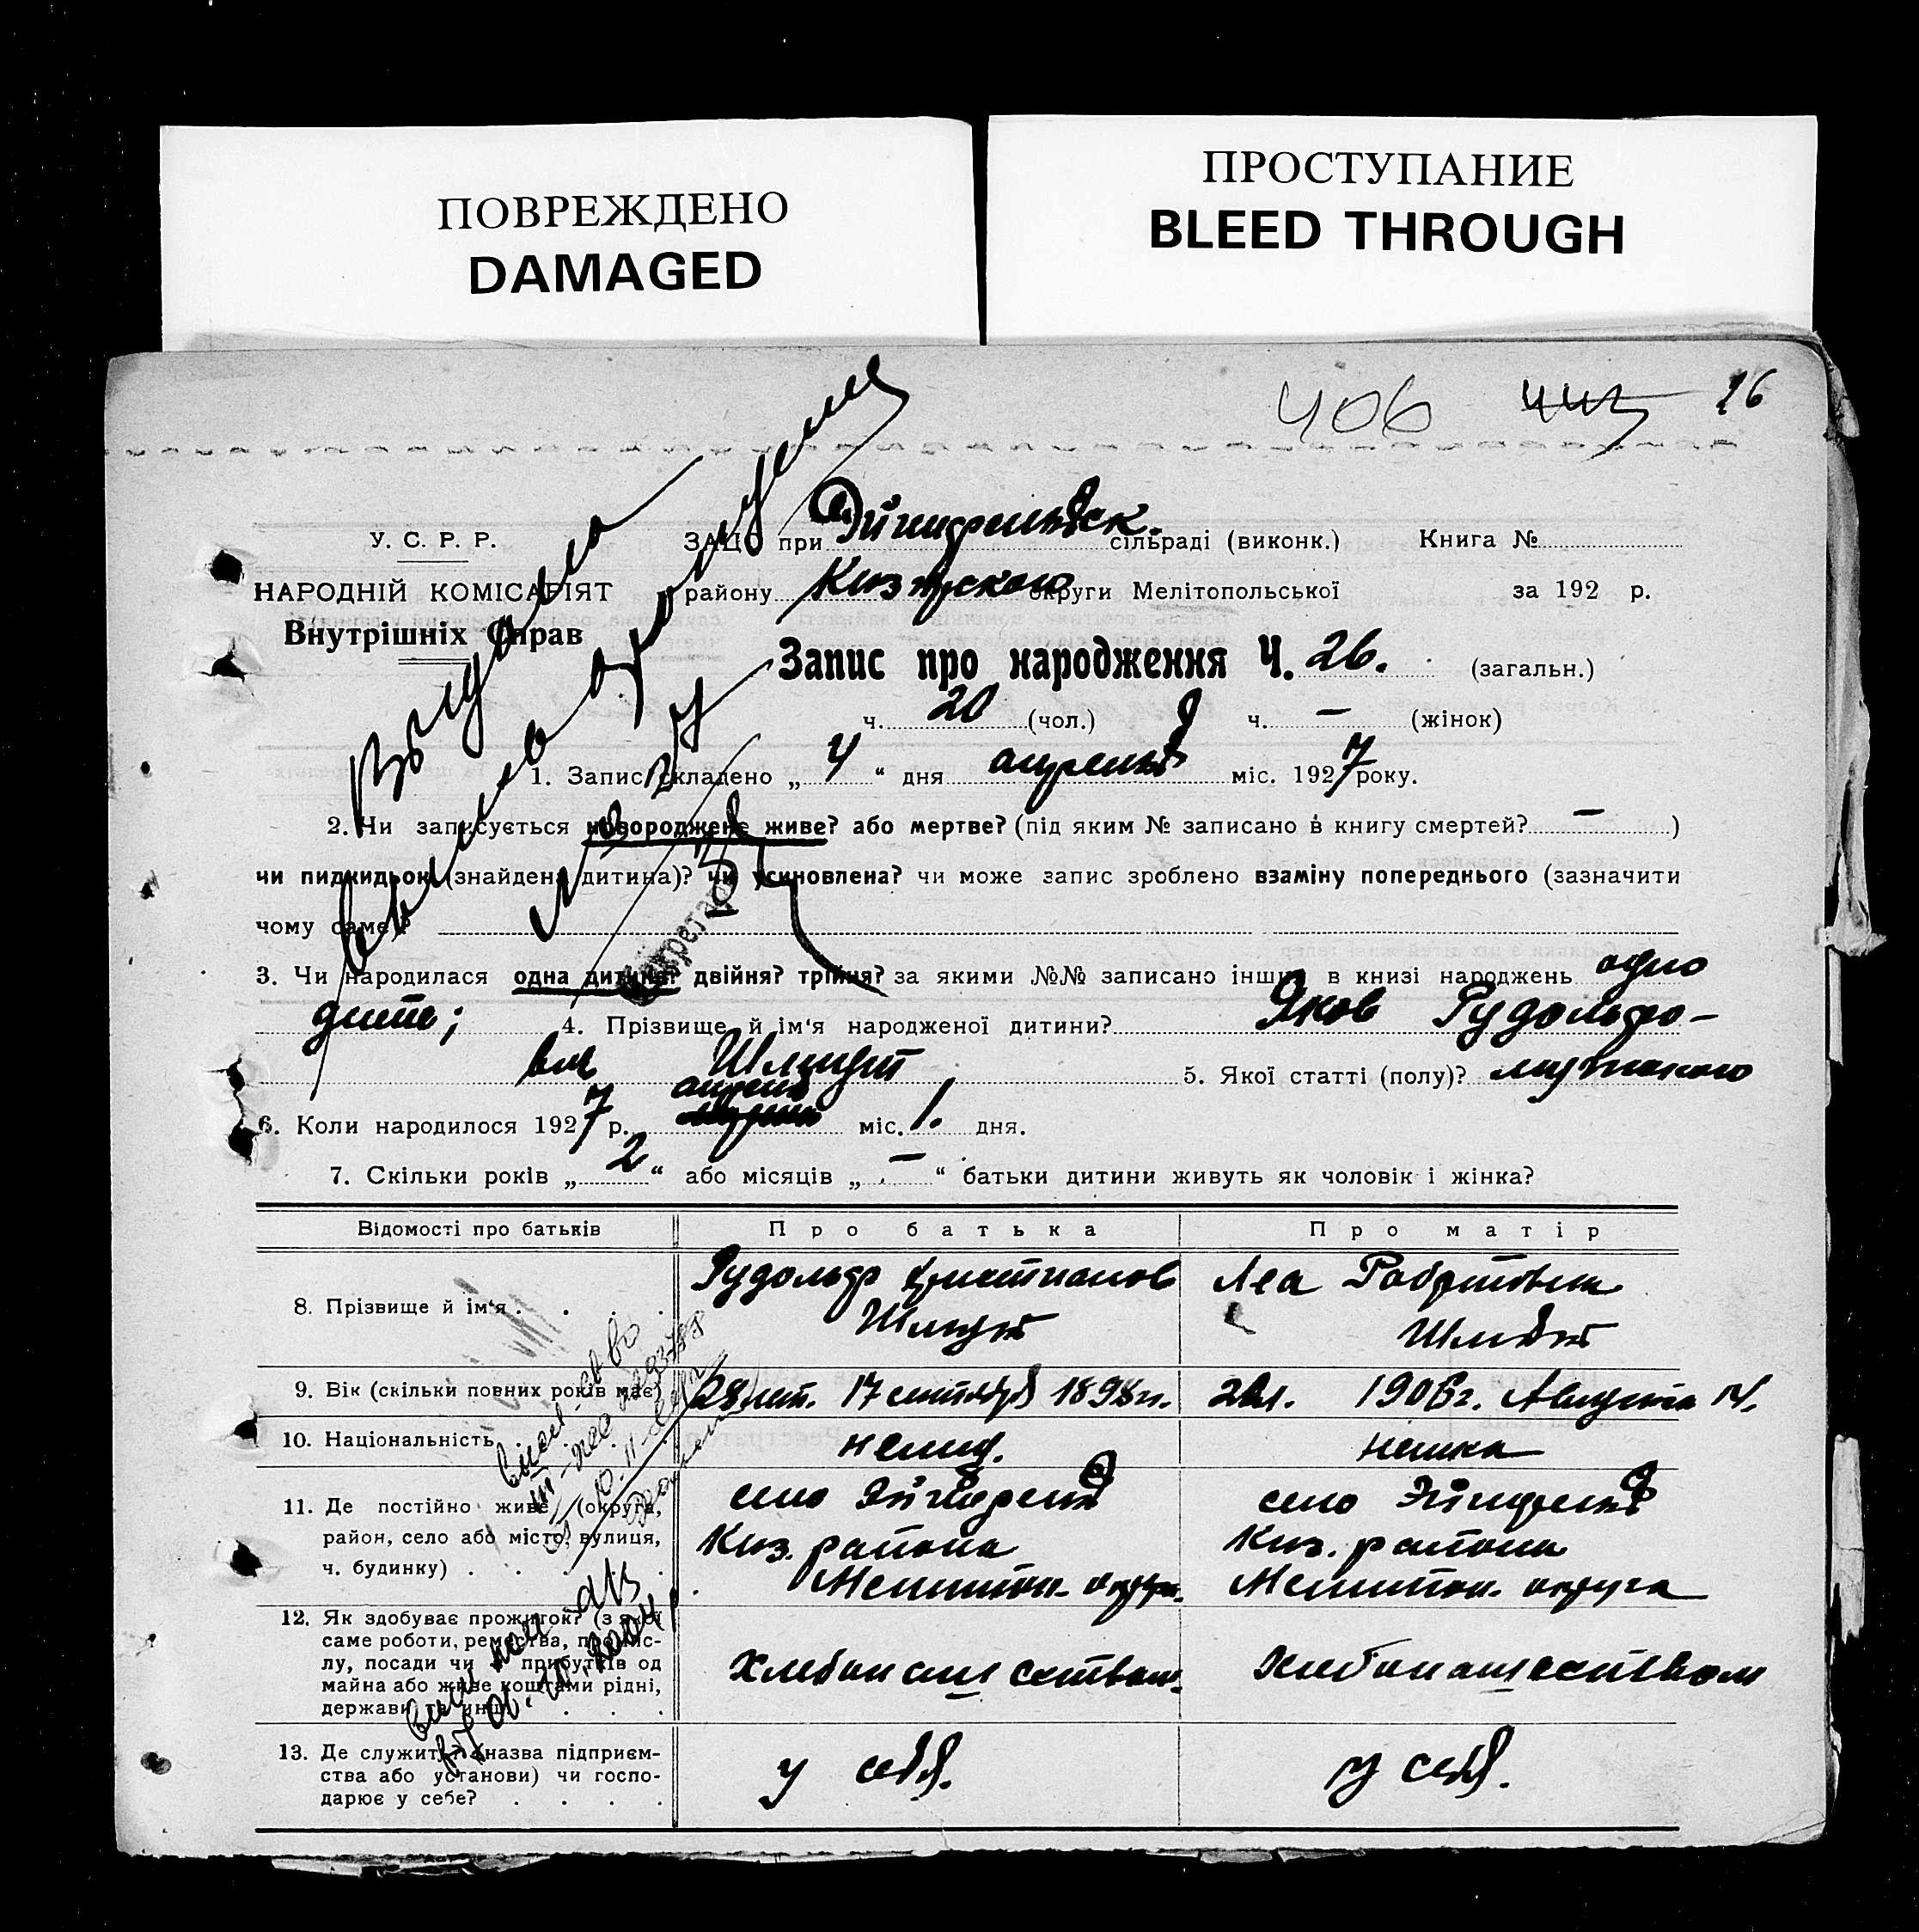 ПОВРЕЖДЕНО
DAMAGED
ПРОСТУПАНИЕ
BLEED THROUGH
406 443 26
У. С. Р. Р.
НАРОДНІЙ КОМІСАРІЯТ
Внутрішніх Справ
ЗАЦС при Эйгенфельдск. сільраді (виконк.) Книга №
району округи Мелітопольської за 192 р.
Запис про народження Ч. 26. (загальн.)
ч. 20 (чол.) ч. — (жінок)
1. Запис складено „ 4 “ дня апреля міс. 1927 року.
2. Чи записується новороджене живе? або мертве? (під яким № записано в книгу смертей? — )
чи пидкидьок (знайдена дитина)? чи усиновлена? чи може запис зроблено взаміну попереднього (зазначити
чому саме)?
3. Чи народилася одна дитина? двійня? трійня? за якими №№ записано інших в книзі народжень одно
дитё; 4. Прізвище й ім'я народженої дитини? Яков Рудольфо-
вич Шмидт 5. Якої статті (полу)? мужского
апреля
6. Коли народилося 1927 р. міс. 1. дня.
7. Скільки років „ 2 “ або місяців „ — “ батьки дитини живуть як чоловік і жінка?
Відомості про батьків Про батька Про матір
8. Прізвище й ім'я . . . . Рудольф Христианов Шмидт
Леа Робертовна Шмидт
9. Вік (скільки повних років має) 28 лет. 17 сентября 1898 г. 20 л. 1906 г. Августа 14.
10. Національність немец. немка
11. Де постійно живе (округа, район, село або місто, вулиця, ч. будинку) . . . .
село Эйгенфельд Киз. района Мелитоп. округа.
село Эйгенфельд Киз. района Мелитоп. округа
12. Як здобуває прожиток? (з якої
саме роботи, ремества, промис-
лу, посади чи з прибутків од
майна або живе коштами рідні,
держави та инш.) . . .
Хлебопашеством. Хлебопашеством
13. Де служить? (назва підприєм-
ства або установи) чи госпо-
дарює у себе? . . . .
у себя. у себя.
Выдано
Секретарь